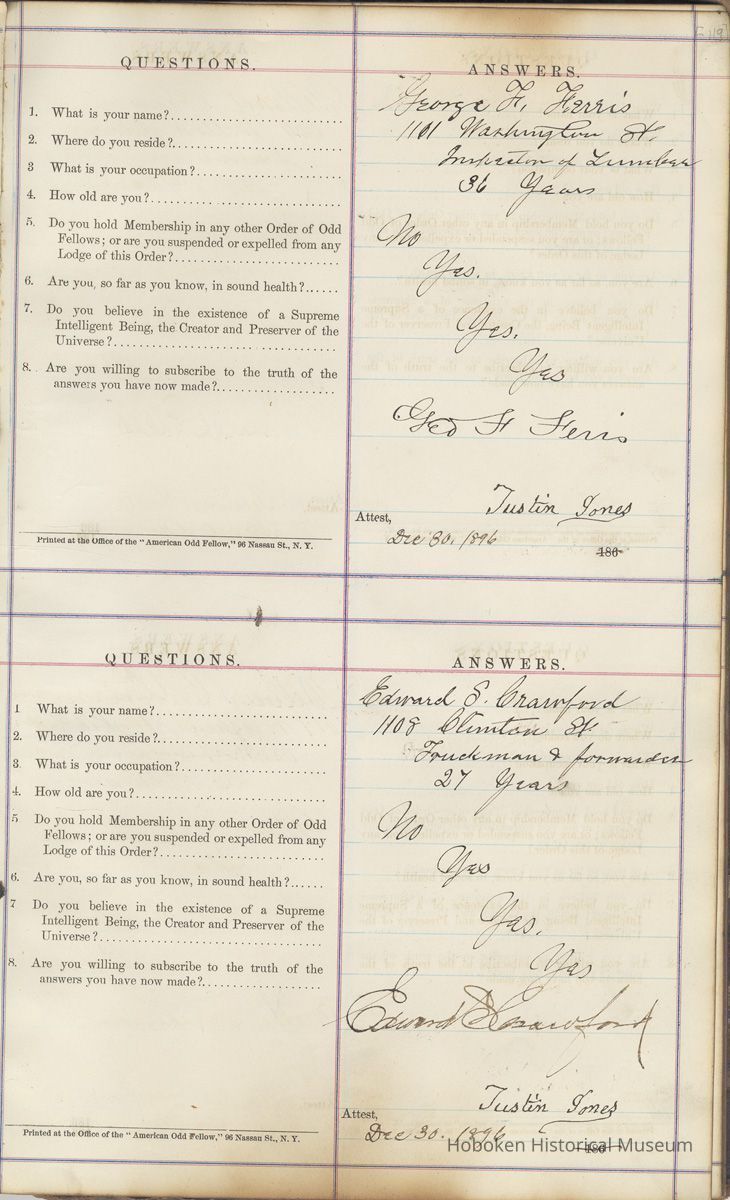 QUESTIONS.
ANSWERS.
1. What is your name?
George F. Ferris
2. Where do you reside?
1101 Washington St.
3 What is your occupation?
Inspector of Lumber
4. How old are you?
36 Years
5. Do you hold Membership in any other Order of Odd
Fellows; or are you suspended or expelled from any
Lodge of this Order?
No
6. Are you, so far as you know, in sound health?
Yes.
7. Do you believe in the existence of a Supreme
Intelligent Being, the Creator and Preserver of the
Universe?
Yes.
8. Are you willing to subscribe to the truth of the
answers you have now made?
Yes
Geo F Ferris
Attest,
Justin Jones
Dec 30. 1896
186
Printed at the Office of the "American Odd Fellow," 96 Nassau St., N. Y.
QUESTIONS.
ANSWERS.
1 What is your name?
Edward S. Crawford
2. Where do you reside?
1108 Clinton St
3. What is your occupation?
Truckman & forwarder
4. How old are you?
27 Years
5 Do you hold Membership in any other Order of Odd
Fellows; or are you suspended or expelled from any
Lodge of this Order?
No
6. Are you, so far as you know, in sound health?
Yes
7 Do you believe in the existence of a Supreme
Intelligent Being, the Creator and Preserver of the
Universe?
Yes.
8. Are you willing to subscribe to the truth of the
answers you have now made?
Yes
Edward S Crawford
Attest,
Justin Jones
Dec 30. 1896
186
Printed at the Office of the "American Odd Fellow," 96 Nassau St., N. Y.
Hoboken Historical Museum